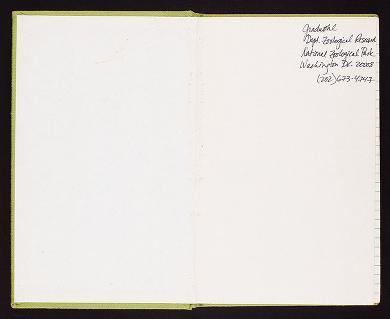 Gradwohl
Dept. Zoological Research
National Zoological Park
Washington D.C. 20008
(202) 673-4747